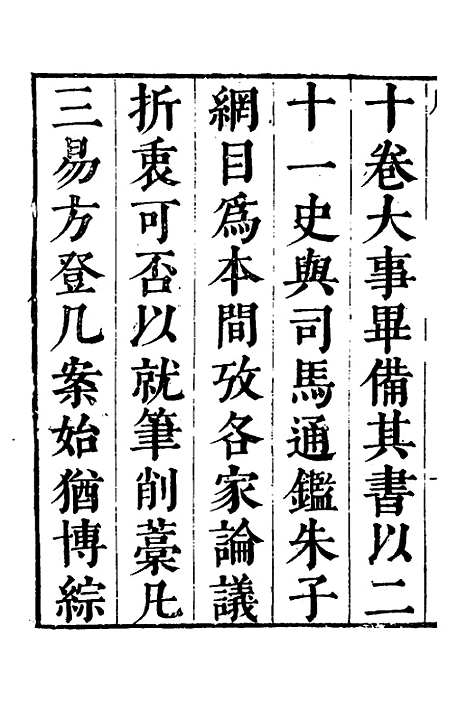 十卷大事畢備其書以二
十一史與司馬通鑑朱子
綱目爲本間攷各家論議
折衷可否以就筆削藁凡
三易方登几案始猶博綜